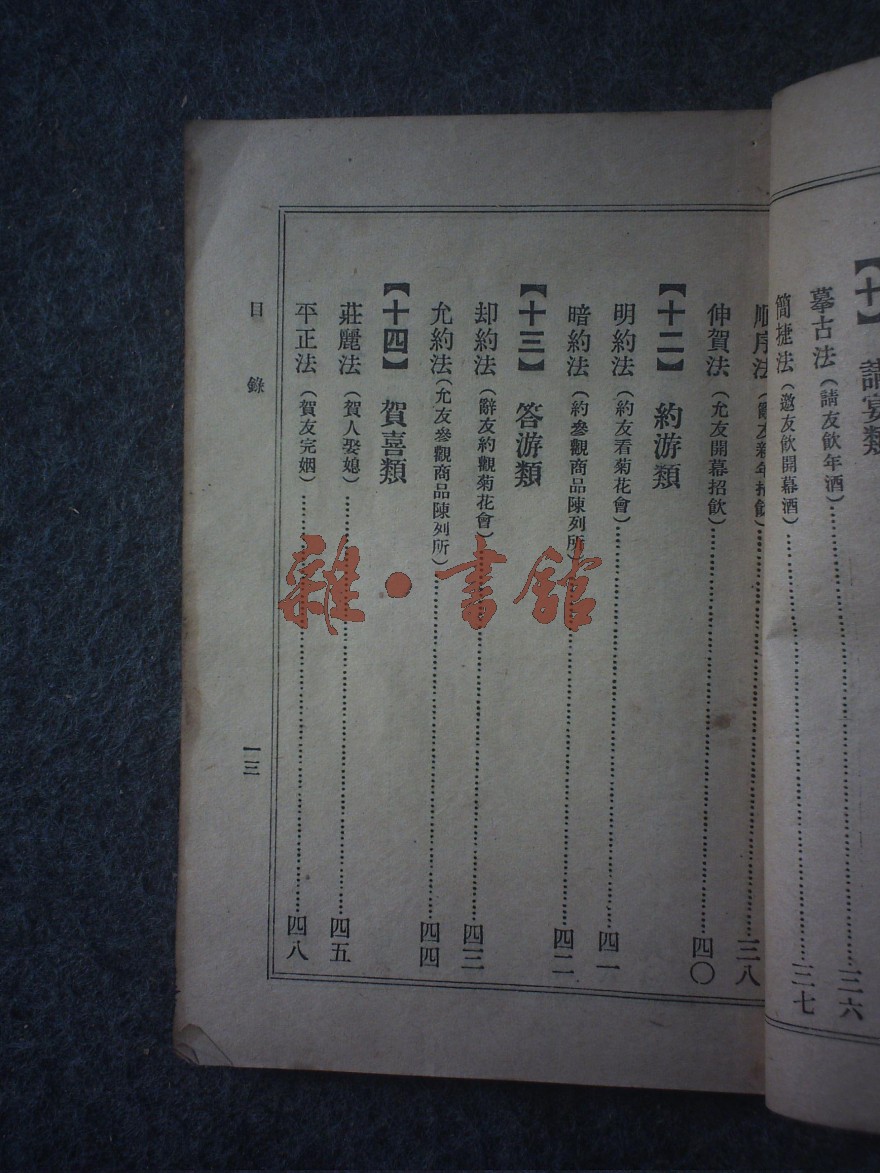 【十】 請宴類
摹古法(請友飲年酒)……三六
簡捷法(邀友飲開幕酒)……三七
順序法(辭友新年招飲)……三八
伸賀法(允友開幕招飲)……四〇
【十二】 約游類
明約法(約友看菊花會)……四一
暗約法(約參觀商品陳列所)……四二
【十三】 答游類
却約法(辭友約觀菊花會)……四三
允約法(允友參觀商品陳列所)……四四
【十四】 賀喜類
莊麗法(賀人娶媳)……四五
平正法(賀友完姻)……四八
目錄
一三
雜·書館